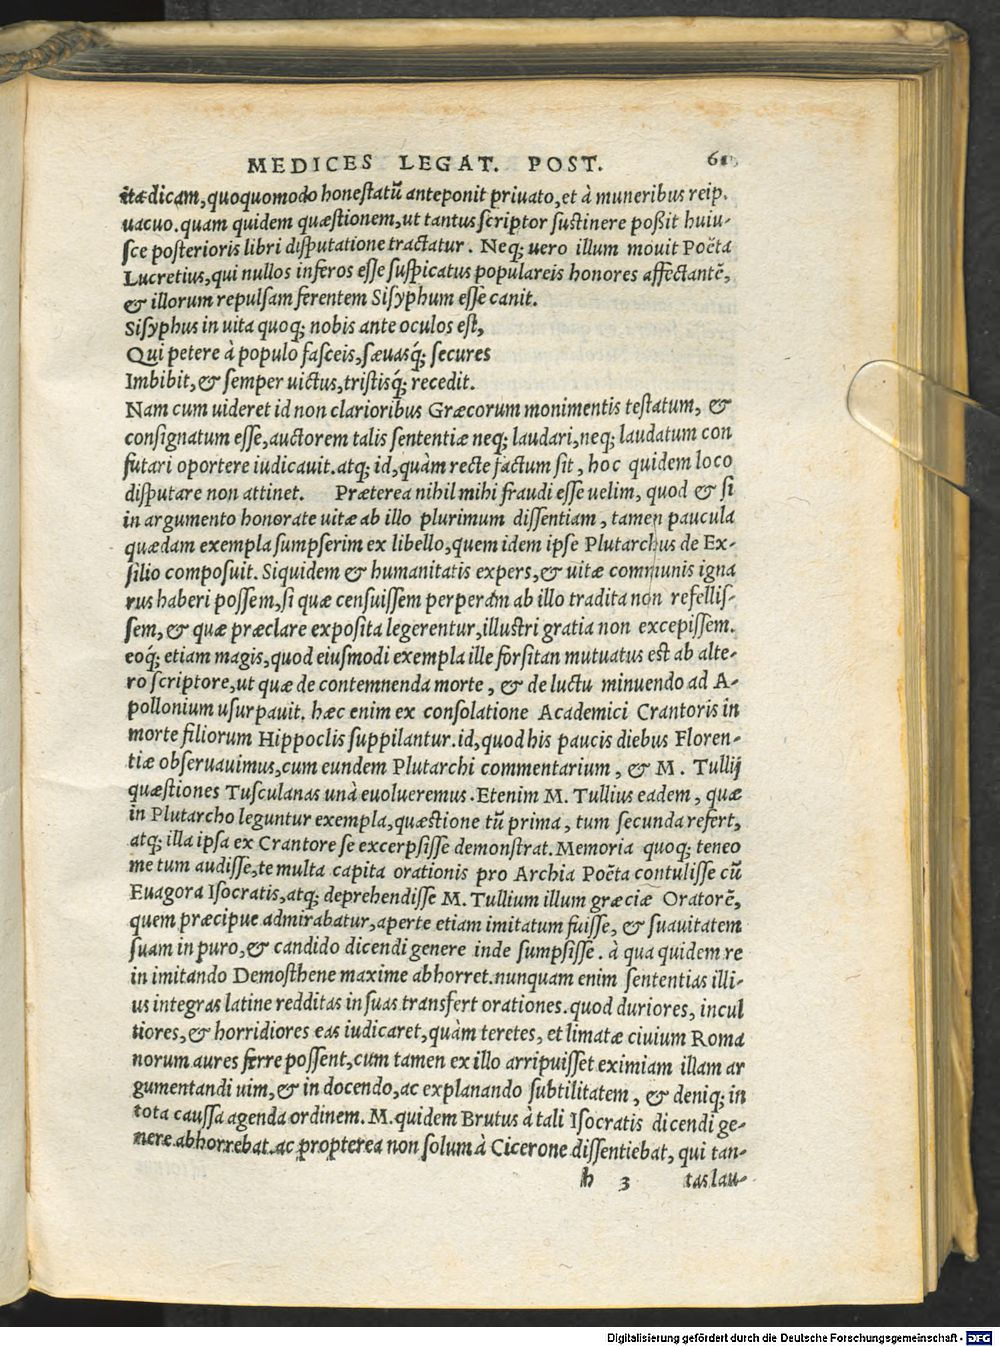 MEDICES LEGAT. POST. 61
itædicam, quoquomodo honestatũ anteponit priuato, et à muneribus reip.
uacuo. quam quidem quæstionem, ut tantus scriptor sustinere poßit huiu-
sce posterioris libri disputatione tractatur. Neq; uero illum mouit Poẽta
Lucretius, qui nullos inferos esse suspicatus populareis honores affectantẽ,
& illorum repulsam ferentem Sisyphum esse canit.
Sisyphus in uita quoq; nobis ante oculos est,
Qui petere à populo fasceis, sæuasq́; secures
Imbibit, & semper uictus, tristisq́; recedit.
Nam cum uideret id non clarioribus Græcorum monimentis testatum, &
consignatum esse, auctorem talis sententiæ neq; laudari, neq; laudatum con
futari oportere iudicauit. atq; id, quàm recte factum sit, hoc quidem loco
disputare non attinet. Præterea nihil mihi fraudi esse uelim, quod & si
in argumento honoratе uitæ ab illo plurimum dissentiam, tamen paucula
quædam exempla sumpserim ex libello, quem idem ipse Plutarchus de Ex-
silio composuit. Siquidem & humanitatis expers, & uitæ communis igna
rus haberi possem, si quæ censuissem perperàm ab illo tradita non refellis-
sem, & quæ præclare exposita legerentur, illustri gratia non excepissem.
eoq́; etiam magis, quod eiusmodi exempla ille forsitan mutuatus est ab alte-
ro scriptore, ut quæ de contemnenda morte, & de luctu minuendo ad A-
pollonium usurpauit. hæc enim ex consolatione Academici Crantoris in
morte filiorum Hippoclis suppilantur. id, quod his paucis diebus Floren-
tiæ obseruauimus, cum eundem Plutarchi commentarium, & M. Tullij
quæstiones Tusculanas unà euolueremus. Etenim M. Tullius eadem, quæ
in Plutarcho leguntur exempla, quæstione tũ prima, tum secunda refert,
atq; illa ipsa ex Crantore se excerpsisse demonstrat. Memoria quoq; teneo
me tum audisse, te multa capita orationis pro Archia Poẽta contulisse cũ
Euagora Isocratis, atq; deprehendisse M. Tullium illum græciæ Oratorẽ,
quem præcipue admirabatur, aperte etiam imitatum fuisse, & suauitatem
suam in puro, & candido dicendi genere inde sumpsisse. à qua quidem re
in imitando Demosthene maxime abhorret. nunquam enim sententias illi-
us integras latine redditas in suas transfert orationes. quod duriores, incul
tiores, & horridiores eas iudicaret, quàm teretes, et limatæ ciuium Roma
norum aures ferre possent, cum tamen ex illo arripuisset eximiam illam ar
gumentandi uim, & in docendo, ac explanando subtilitatem, & deniq; in
tota caussa agenda ordinem. M. quidem Brutus à tali Isocratis dicendi ge-
nere abhorrebat. ac propterea non solum à Cicerone dissentiebat, qui tan-
h 3 tas lau-
Digitalisierung gefördert durch die Deutsche Forschungsgemeinschaft - DFG